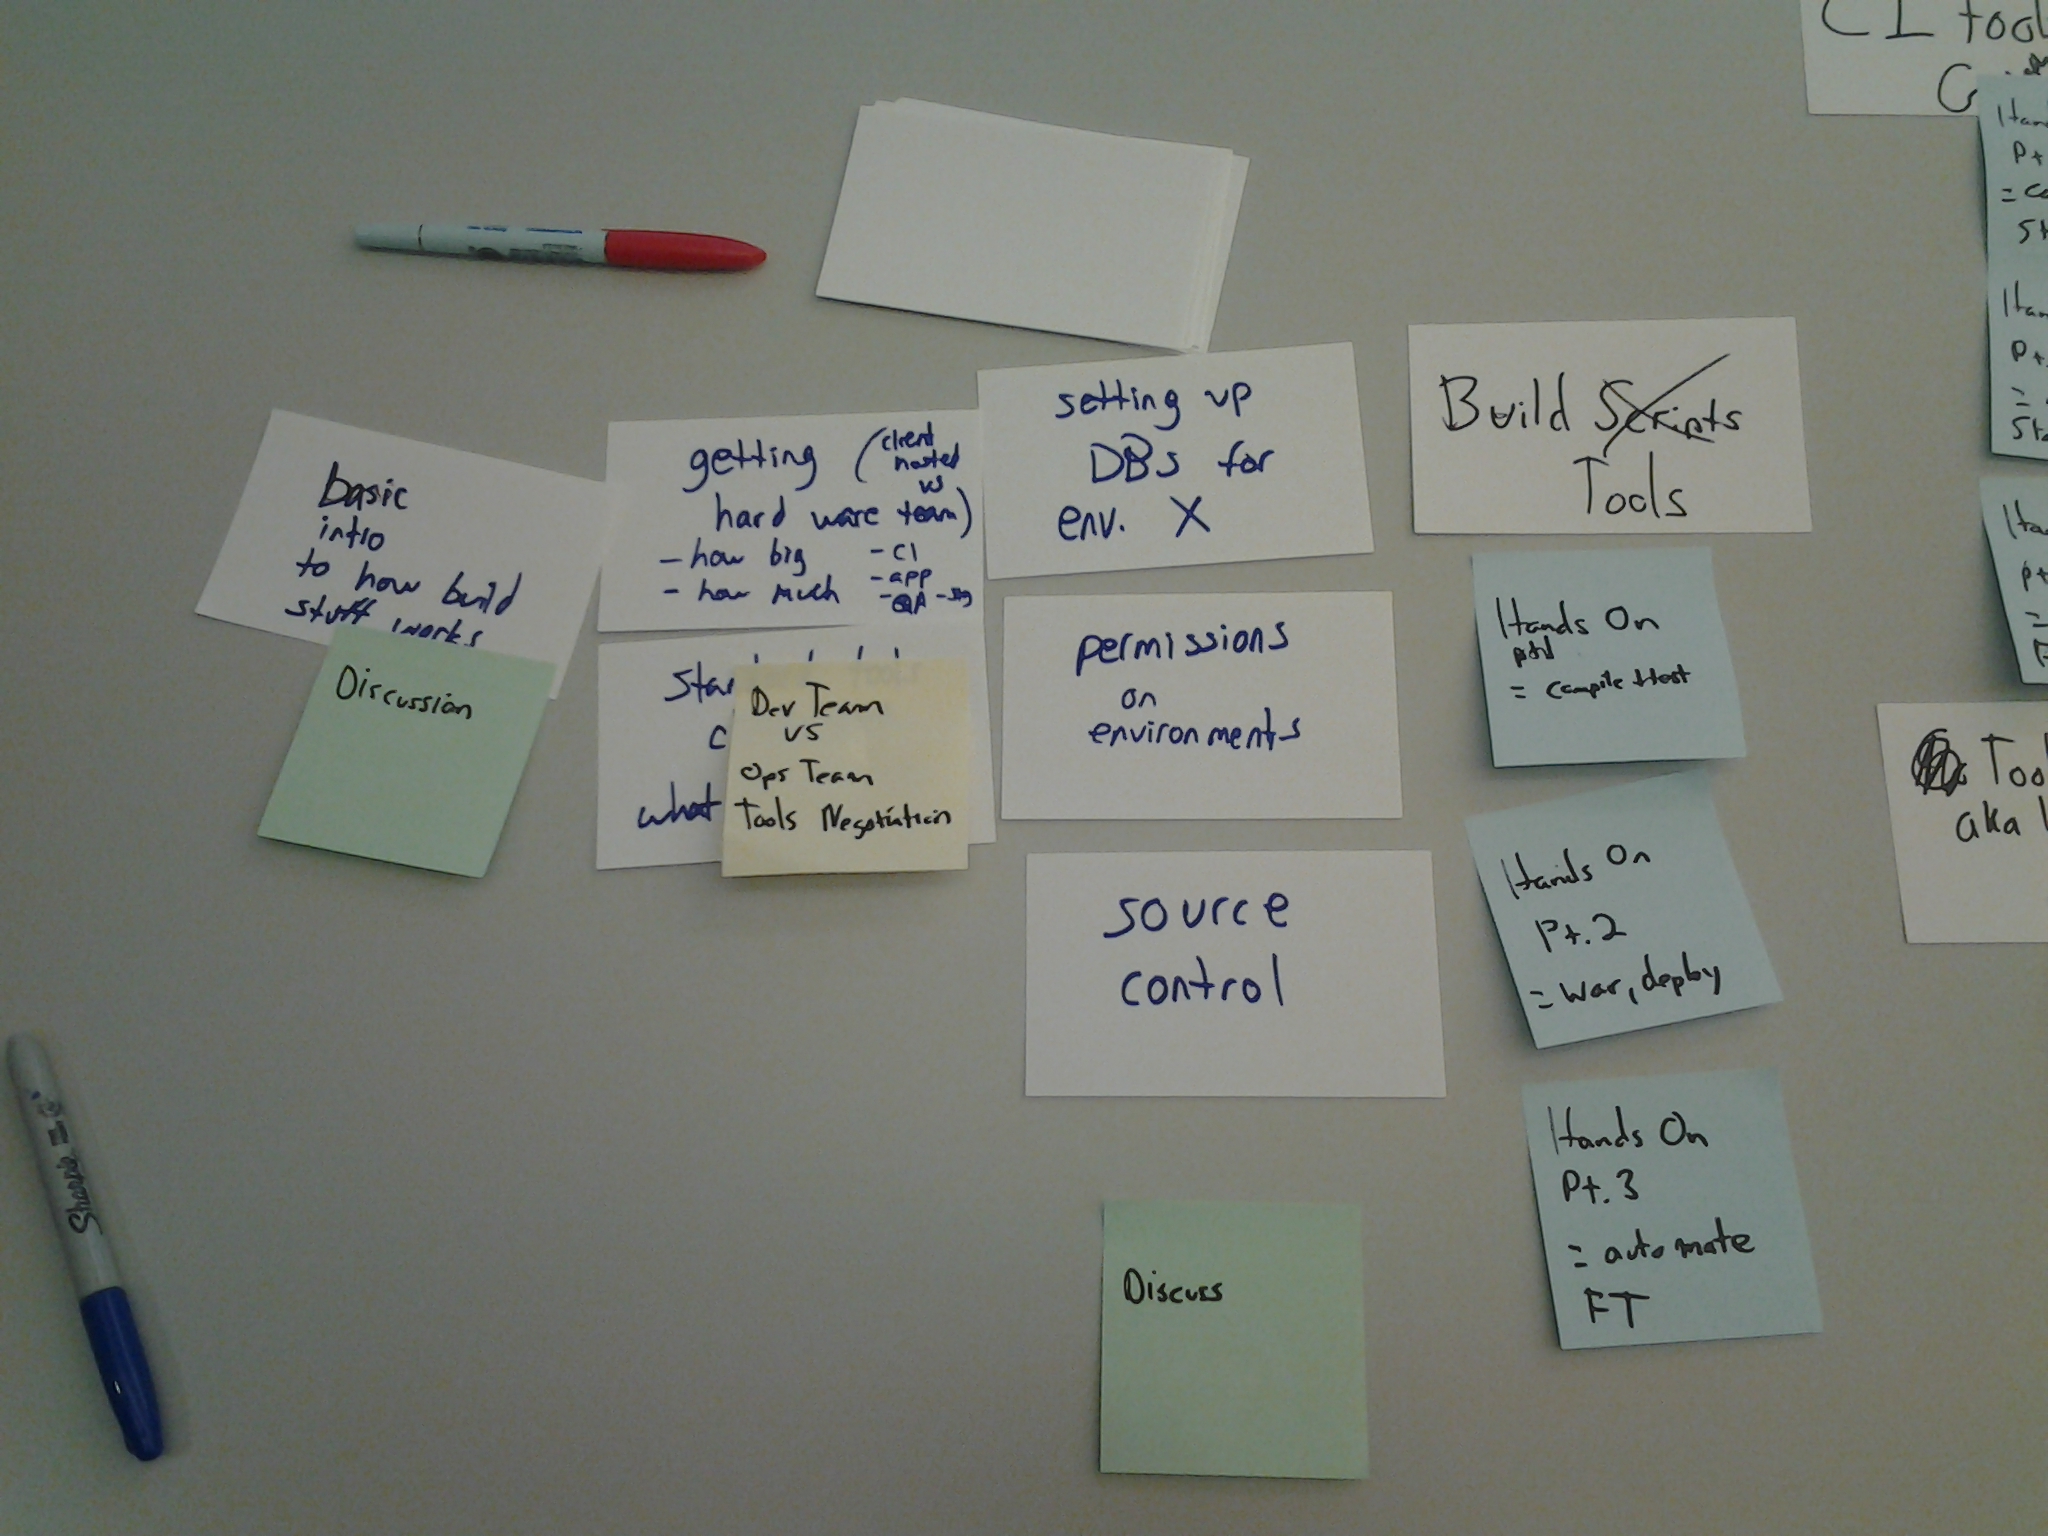 basic
intro
to how build
stuff works
Discussion
getting (client
hosted
vs
hard ware team)
- how big - CI
- how much - app
- QA
what
Dev Team
vs
Ops Team
Tools Negotiation
setting up
DBs for
env. X
permissions
on
environments
source
control
Discuss
Build Scripts
Tools
Hands On
= compile +test
Hands On
Pt. 2
= war, deploy
Hands On
Pt. 3
= automate
FT
CI
aka
Sharpie